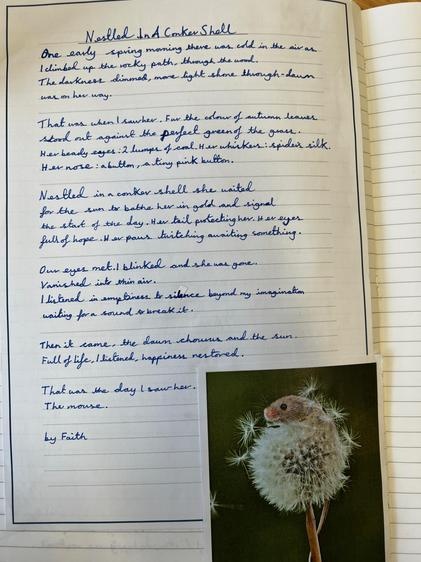 Nestled In A Conker Shell
One early spring morning there was cold in the air as
I climbed up the rocky path, through the wood.
The darkness dimmed, more light shone through-dawn
was on her way.
That was when I saw her. Fur the colour of autumn leaves
stood out against the perfect green of the grass.
Her beady eyes: 2 lumps of coal. Her whiskers: spiders silk.
Her nose: a button, a tiny pink button.
Nestled in a conker shell she waited
for the sun to bathe her in gold and signal
the start of the day. Her tail protecting her. Her eyes
full of hope. Her paws twitching awaiting something.
Our eyes met. I blinked and she was gone.
Vanished into thin air.
I listened in emptiness to silence beyond my imagination
waiting for a sound to break it.
Then it came, the dawn chourus and the sun.
Full of life, I listened, happiness restored.
That was the day I saw her.
The mouse.
by Faith